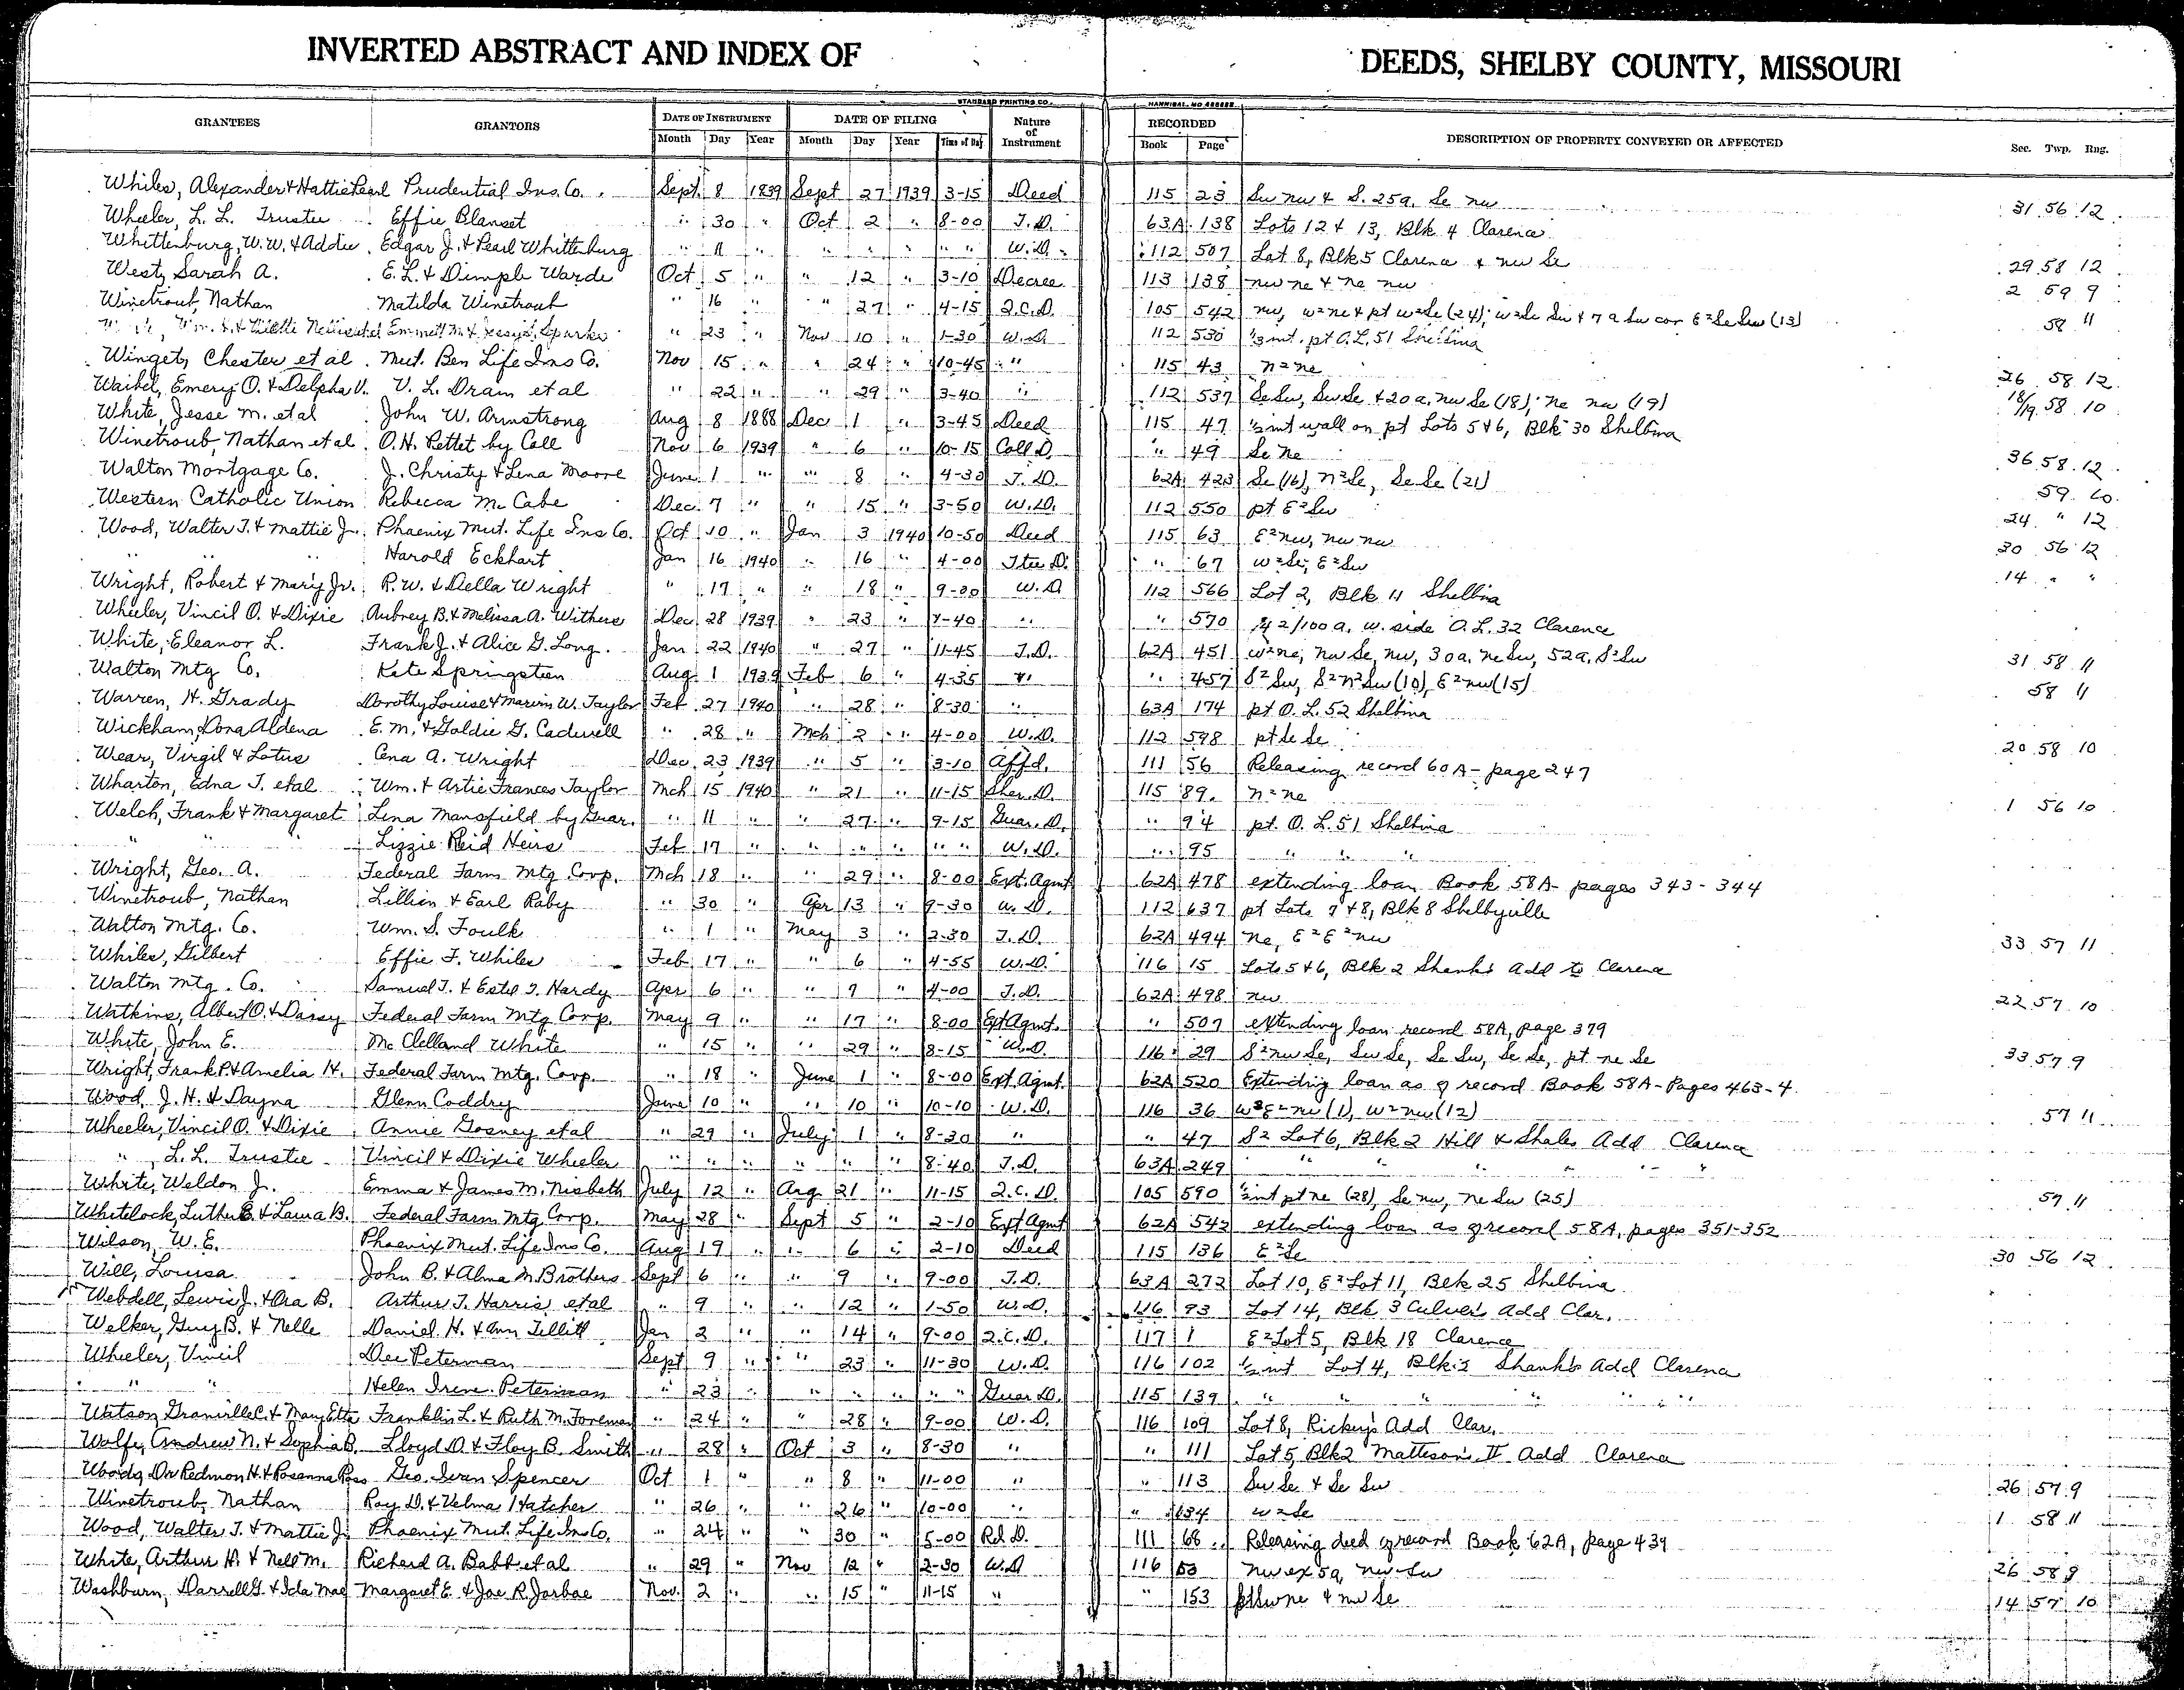 INVERTED ABSTRACT AND INDEX OF DEEDS, SHELBY COUNTY, MISSOURI
STANDARD PRINTING CO. HANNIBAL, MO
GRANTEES GRANTORS DATE OF INSTRUMENT DATE OF FILING Nature of Instrument RECORDED DESCRIPTION OF PROPERTY CONVEYED OR AFFECTED Sec. Twp. Rng.
Month Day Year Month Day Year Time of Day Book Page
Whiles, Alexander & Hattie Pearl Prudential Ins. Co. Sept 8 1939 Sept 27 1939 3-15 Deed 115 23 Sw nw & S. 25a. Se nw 31 56 12
Wheeler, L. L. Trustee Effie Blanset " 30 " Oct 2 " 8-00 T.D. 63A 138 Lots 12 & 13, Blk 4 Clarence
Whittenburg, W.W. & Addie Edgar J. & Pearl Whittenburg " 11 " " " " " " W.D. 112 507 Lot 8, Blk 5 Clarence & nw Se 29 58 12
West, Sarah A. E.L. & Dimple Warde Oct 5 " " 12 " 3-10 Decree 113 138 nw ne & ne nw 2 59 9
Winetroub, Nathan Matilda Winetroub " 16 " " 27 " 4-15 Q.C.D. 105 542 nw, w² ne & pt w² Se (24); w² Se Sw & 7 a Sw cor E² Se Sw (13) 58 11
Sparks " 23 " Nov 10 " 1-30 W.D. 112 530 ⅓ int. pt O.L. 51 Shelbina
Winget, Chester et al Mut. Ben Life Ins Co. Nov 15 " " 24 " 10-45 " 115 43 n² ne 26 58 12
Waibel, Emery O. & Delpha V. V. L. Drain et al " 22 " " 29 " 3-40 " 112 537 Se Sw, Sw Se & 20 a. nw Se (18); ne nw (19) 18/19 58 10
White, Jesse M. et al John W. Armstrong Aug 8 1888 Dec 1 " 3-45 Deed 115 47 ½ int wall on pt Lots 5 & 6, Blk 30 Shelbina
Winetroub, Nathan et al O.H. Pettet by Coll Nov 6 1939 " 6 " 10-15 Coll D. " 49 Se ne 36 58 12
Walton Mortgage Co. J. Christy & Lena Moore June 1 " " 8 " 4-30 T.D. 62A 423 Se (16), n² Se, Se Se (21) 59 10
Western Catholic Union Rebecca McCabe Dec 7 " " 15 " 3-50 W.D. 112 550 pt E² Sw 24 " 12
Wood, Walter T. & Mattie J. Phoenix Mut. Life Ins Co. Oct 10 " Jan 3 1940 10-50 Deed 115 63 E² nw, nw nw 30 56 12
" " " Harold Eckhart Jan 16 1940 " 16 " 4-00 Tree D. " 67 w² Se, E² Sw 14 " "
Wright, Robert & Mary Jr. R.W. & Della Wright " 17 " " 18 " 9-00 W.D 112 566 Lot 2, Blk 11 Shelbina
Wheeler, Vincil O. & Dixie Aubrey B. & Melissa A. Withers Dec 28 1939 " 23 " 1-40 " " 570 42/100 a. w. side O.L. 32 Clarence
White, Eleanor L. Frank J. & Alice G. Long Jan 22 1940 " 27 " 11-45 T.D. 62A 451 w² ne, nw Se, nw, 30 a. ne Sw, 52 a. S² Sw 31 58 11
Walton Mtg Co. Kate Springsteen Aug 1 1939 Feb 6 " 4-35 " " 457 S² Sw, S² n² Sw (10), E² nw (15) 58 11
Warren, H. Grady Dorothy Louise & Marvin W. Taylor Feb 27 1940 " 28 " 8-30 " 63A 174 pt O.L. 52 Shelbina
Wickham, Lona Aldena E. M. & Goldie G. Cadwell " 28 " Mch 2 " 4-00 W.D. 112 598 pt Se Se 20 58 10
Wear, Virgil & Lotus Cena A. Wright Dec 23 1939 " 5 " 3-10 Affd. 111 56 Releasing record 60A - page 247
Wharton, Edna T. et al Wm. & Artie Frances Taylor Mch 15 1940 " 21 " 11-15 Sher. D. 115 89 n² ne 1 56 10
Welch, Frank & Margaret Lena Mansfield by Guar. " 11 " " 27 " 9-15 Guar. D. " 94 pt. O.L. 51 Shelbina
" " " Lizzie Reid Heirs Feb 17 " " " " " " W.D. " 95 " " "
Wright, Geo. A. Federal Farm Mtg Corp. Mch 18 " " 29 " 8-00 Ext. Agmt 62A 478 extending loan Book 58A - pages 343-344
Winetroub, Nathan Lillien & Earl Raby " 30 " Apr 13 " 9-30 W.D. 112 637 pt Lots 7 & 8, Blk 8 Shelbyville
Walton Mtg. Co. Wm. S. Foulk " 1 " May 3 " 2-30 T.D. 62A 494 ne, E² E² nw 33 57 11
Whiles, Gilbert Effie F. Whiles Feb 17 " " 6 " 4-55 W.D. 116 15 Lots 5 & 6, Blk 2 Shanks Add to Clarence
Walton Mtg. Co. Samuel T. & Estel I. Hardy Apr 6 " " 9 " 4-00 T.D. 62A 498 nw 22 57 10
Watkins, Albert O. & Daisy Federal Farm Mtg Corp. May 9 " " 17 " 8-00 Ext Agmt. " 507 extending loan record 58A, page 379
White, John E. McClelland White " 15 " " 29 " 8-15 W.D. 116 29 S² nw Se, Sw Se, Se Sw, Se Se, pt ne Se 33 57 9
Wright, Frank P. & Amelia H. Federal Farm Mtg. Corp. " 18 " June 1 " 8-00 Ext Agmt. 62A 520 Extending loan as of record Book 58A - Pages 463-4
Wood, J. H. & Dayna Glenn Coddry June 10 " " 10 " 10-10 W.D. 116 36 w² E² nw (1), w² nw (12) 57 11
Wheeler, Vincil O. & Dixie Annie Gosney et al " 29 " July 1 " 8-30 " " 47 S² Lot 6, Blk 2 Hill & Shales Add Clarence
" , L.L. Trustee Vincil & Dixie Wheeler " " " " " " 8-40 T.D. 63A 249 " " " " " "
White, Weldon Jr. Emma & James M. Nisbeth July 12 " Aug 21 " 11-15 Q.C.D. 105 590 ½ int pt ne (28), Se nw, ne Sw (25) 57 11
Whitelock, Luther B. & Laura B. Federal Farm Mtg Corp. May 28 " Sept 5 " 2-10 Ext Agmt 62A 542 extending loan as of record 58A, pages 351-352
Wilson, W. E. Phoenix Mut. Life Ins Co. Aug 19 " " 6 " 2-10 Deed 115 136 E² Se 30 56 12
Will, Louisa John B. & Alma M. Brothers Sept 6 " " 9 " 9-00 T.D. 63A 272 Lot 10, E² Lot 11, Blk 25 Shelbina
Webdell, Lewis J. & Ora B. Arthur T. Harris et al " 9 " " 12 " 1-50 W.D. 116 93 Lot 14, Blk 3 Culver's Add Clar.
Welker, Guy B. & Nelle Daniel H. & Ann Tillitt Jan 2 " " 14 " 9-00 Q.C.D. 117 1 E² Lot 5, Blk 18 Clarence
Wheeler, Vincil Dee Peterman Sept 9 " " 23 " 11-30 W.D. 116 102 ½ int Lot 4, Blk 2 Shanks Add Clarence
" " Helen Irene Peterman " 23 " " " " " " Guar D. 115 139 " " " " " "
Watson, Granville C. & Mary Etta Franklin L. & Ruth M. Foreman " 24 " " 28 " 9-00 W.D. 116 109 Lot 8, Rickey's Add Clar.
Wolfe, Andrew N. & Sophia B. Lloyd D. & Floy B. Smith " 28 " Oct 3 " 8-30 " " 111 Lot 5, Blk 2 Matteson's II Add Clarence
Woods, Dr Redmon H. & Rosanna Ross Geo. Ivan Spencer Oct 1 " " 8 " 11-00 " " 113 Sw Se & Se Sw 26 57 9
Winetroub, Nathan Roy D. & Velma Hatcher " 26 " " 26 " 10-00 " " 134 w² Se 1 58 11
Wood, Walter T. & Mattie J. Phoenix Mut. Life Ins Co. " 24 " " 30 " 5-00 Rel D. 111 68 Releasing deed of record Book 62A, page 439
White, Arthur H. & Nell M. Richard A. Babb et al " 29 " Nov 12 " 2-30 W.D 116 nw ex 5a, nw Sw 26 58 9
Washburn, Darrell G. & Ida Mae Margaret E. & Joe R. Jarboe Nov. 2 " " 15 " 11-15 " " 153 pt Sw ne & nw Se 14 57 10